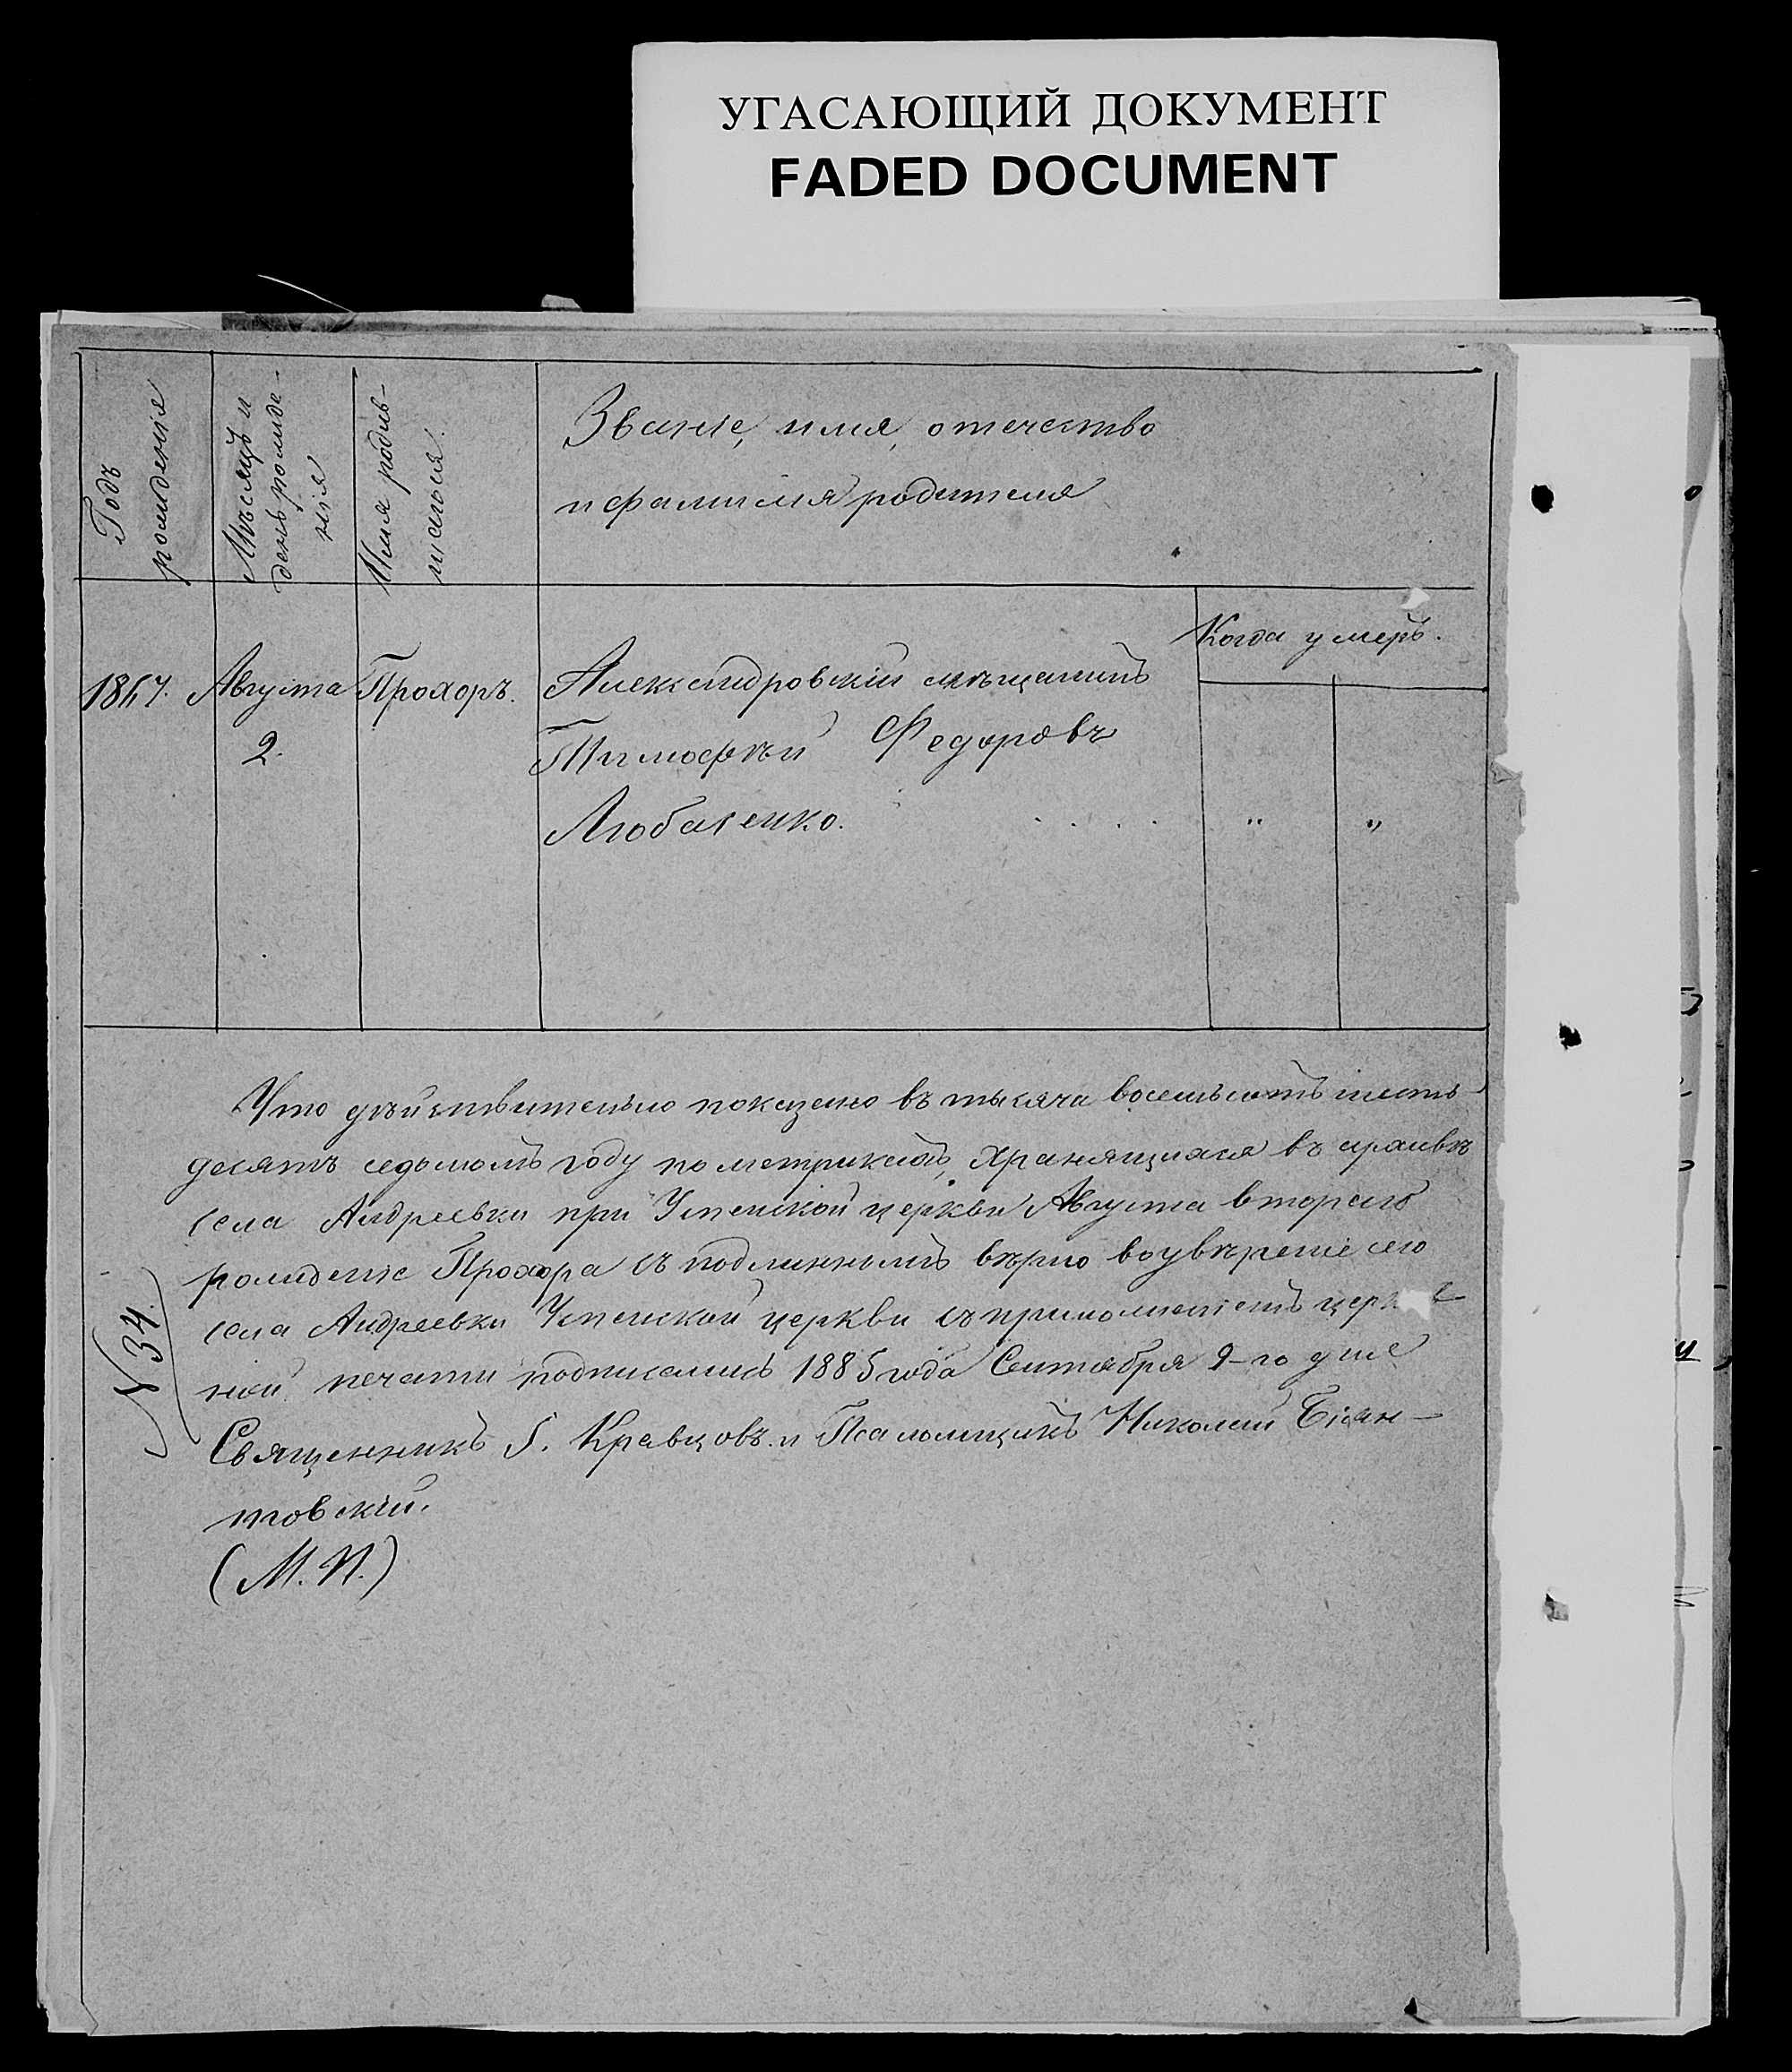 УГАСАЮЩИЙ ДОКУМЕНТ
FADED DOCUMENT
Годъ
рожденія
Мѣсяцъ и
день рожде-
нія
Имя родив-
шагося.
Званіе, имя, отечество
и фамилія родителя
Когда умеръ.
1867. Августа Прохоръ. Александровскій мѣщанинъ
2. Тимофѣй Федоровъ
Любаченко. . . . . „ „
Что дѣйствительно показано въ тысяча восемьсотъ шесть-
десятъ седьмомъ году по метрикамъ, хранящихся въ архивѣ
села Андреевки при Успенской церкви Августа втораго
рожденіе Прохора съ подлиннымъ вѣрно во увѣреніе сего
села Андреевки Успенской церкви съ приложеніемъ
ной печати подписались 1885 года Сентября 9-го дня
№ 34.
Священникъ Г. Кравцовъ. и Псаломщикъ Николай
товскій.
(М.П.)